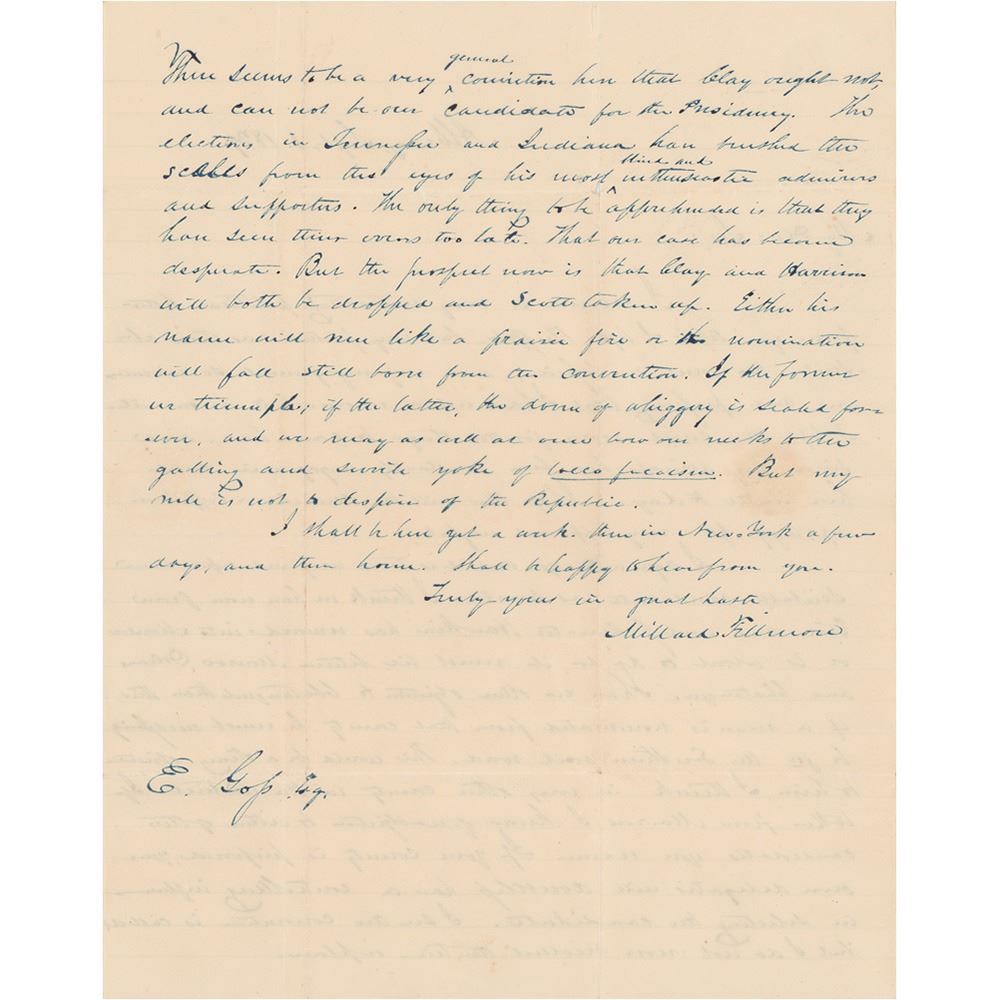 There seems to be a very general conviction here that Clay ought not,
and can not be our candidate for the Presidency. The
elections in Tennessee and Indiana have brushed the
scales from the eyes of his most blind and enthusiastic admirers
and supporters. The only thing to be apprehended is that they
have seen their errors too late. That our case has become
desperate. But the prospect now is that Clay and Harrison
will both be dropped and Scott taken up. Either his
name will run like a prairie fire or the nomination
will fall still born from the convention. If the former
we triumph; if the latter, the doom of whiggery is sealed for-
ever, and we may as well at once bow our necks to the
galling and servile yoke of locco focoism. But my
rule is not to despair of the Republic.
I shall be here yet a week. then in New-York a few
days, and then home. Shall be happy to hear from you.
Truly yours in great haste
Millard Fillmore
E. Goss Esq.